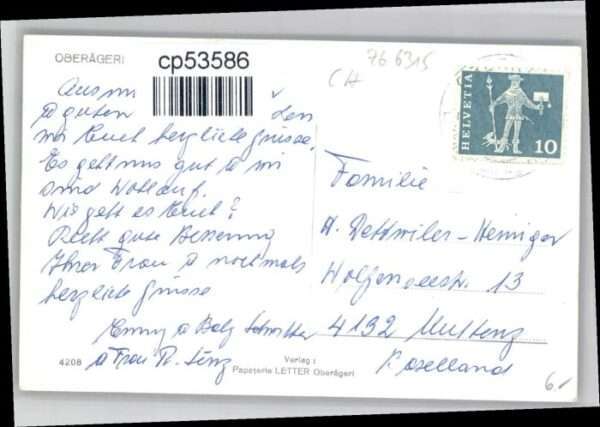 OBERÄGERI
cp53586
CH
76 6315
HELVETIA
10
Aus
guten
Euch herzliche Grüsse.
Es geht uns gut & mir
sind Wohlauf.
Wie geht es Euch?
Recht gute Besserung
Ihrer Frau & nochmals
herzliche Grüsse
Emmy & Balz
& Frau
Familie
H. Dettwiler-Heiniger
13
4132 Muttenz
Baselland
4208
Verlag:
Papeterie LETTER Oberägeri